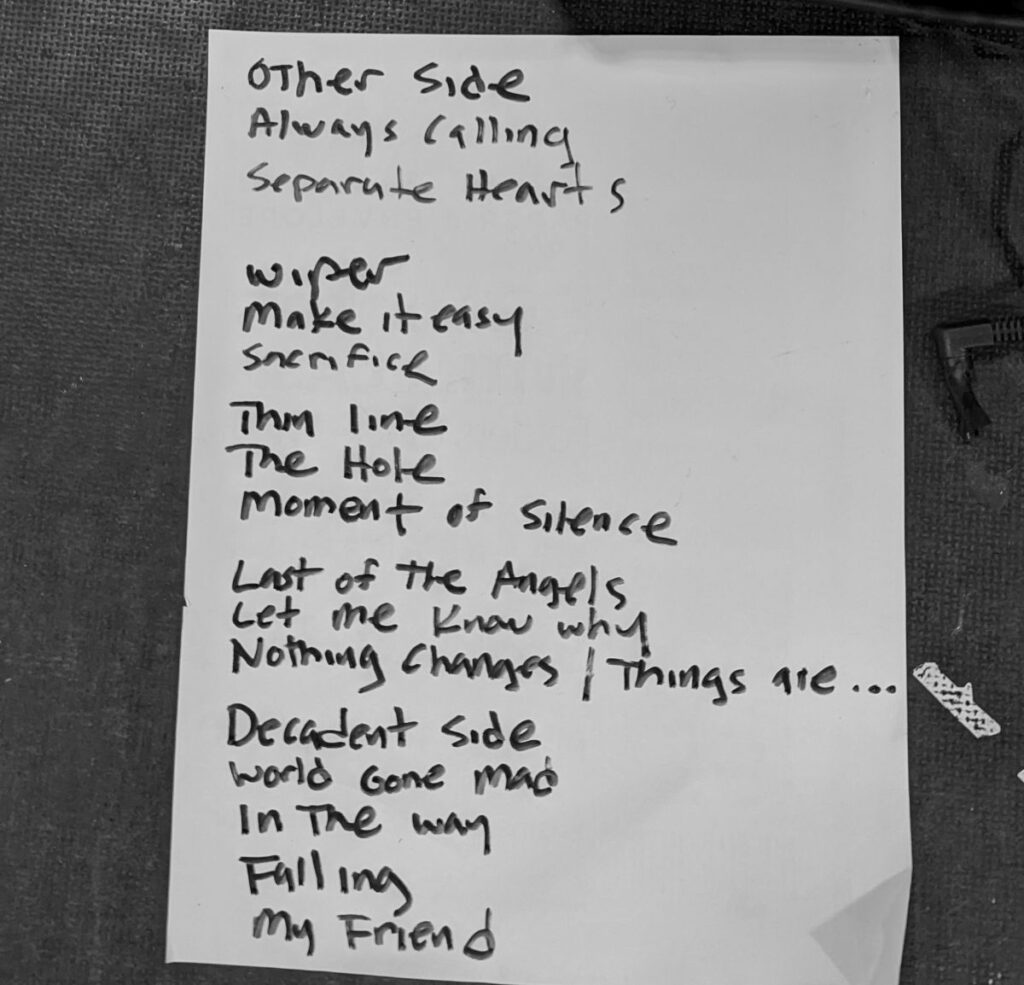 Other Side
Always Calling
Separate Hearts
Wiper
Make it easy
Sacrifice
Thin line
The Hole
Moment of Silence
Last of The Angels
Let me Know why
Nothing Changes / Things are...
Decadent Side
World Gone Mad
In The way
Falling
My Friend